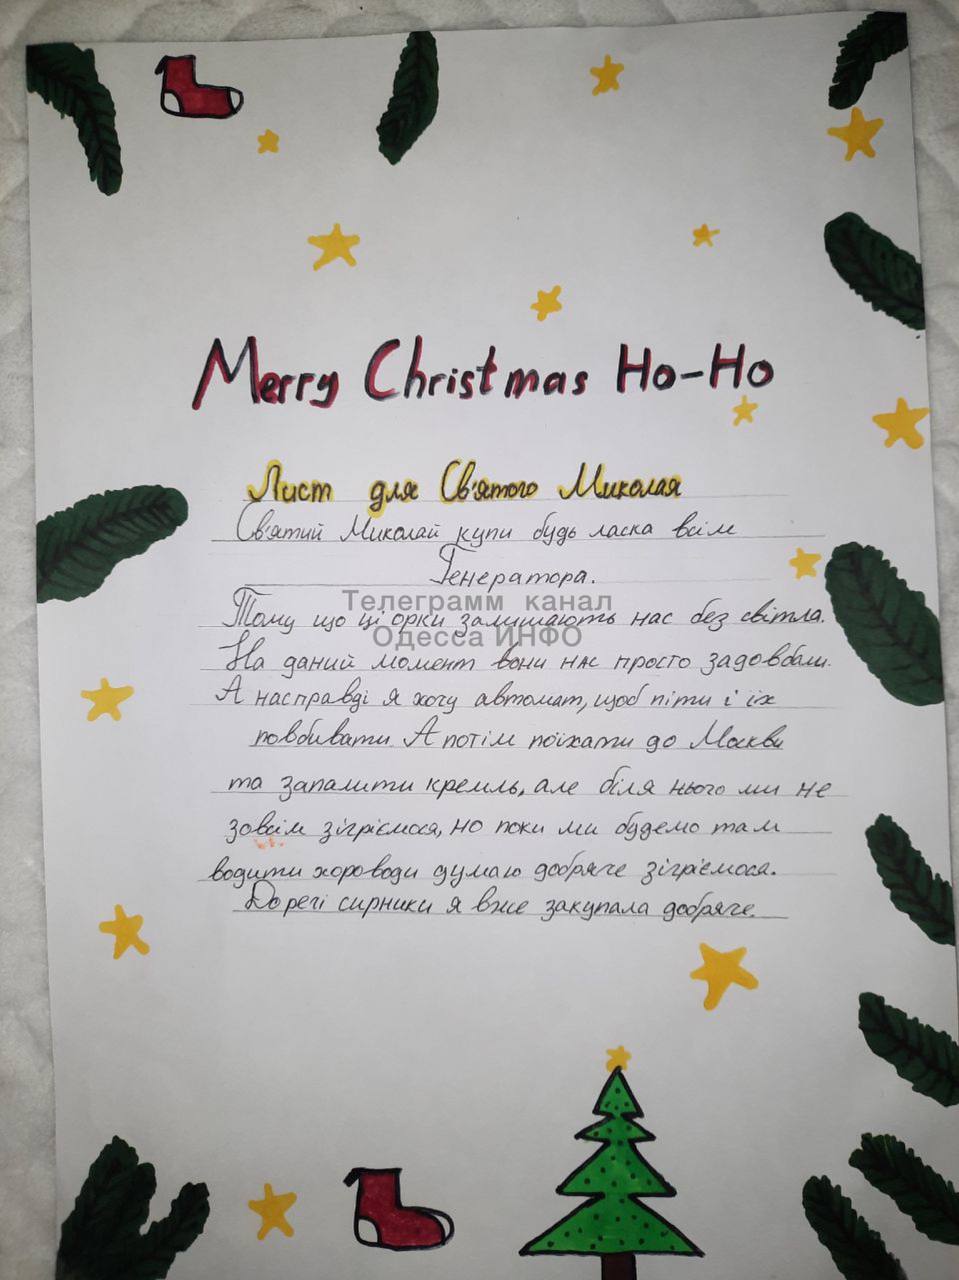 Merry Christmas Ho-Ho
Лист для Святого Миколая
Святий Миколай купи будь ласка всім
Генератора.
Телеграмм канал
Тому що ці орки залишають нас без світла.
Одесса ИНФО
На даний момент вони нас просто задовбали.
А насправді я хочу автомат, щоб піти і їх
повбивати. А потім поїхати до Москви
та запалити кремль, але біля нього ми не
зовсім зігріємося, но поки ми будемо там
водити хороводи думаю добряче зігріємося.
До речі сирники я вже закупала добряче.